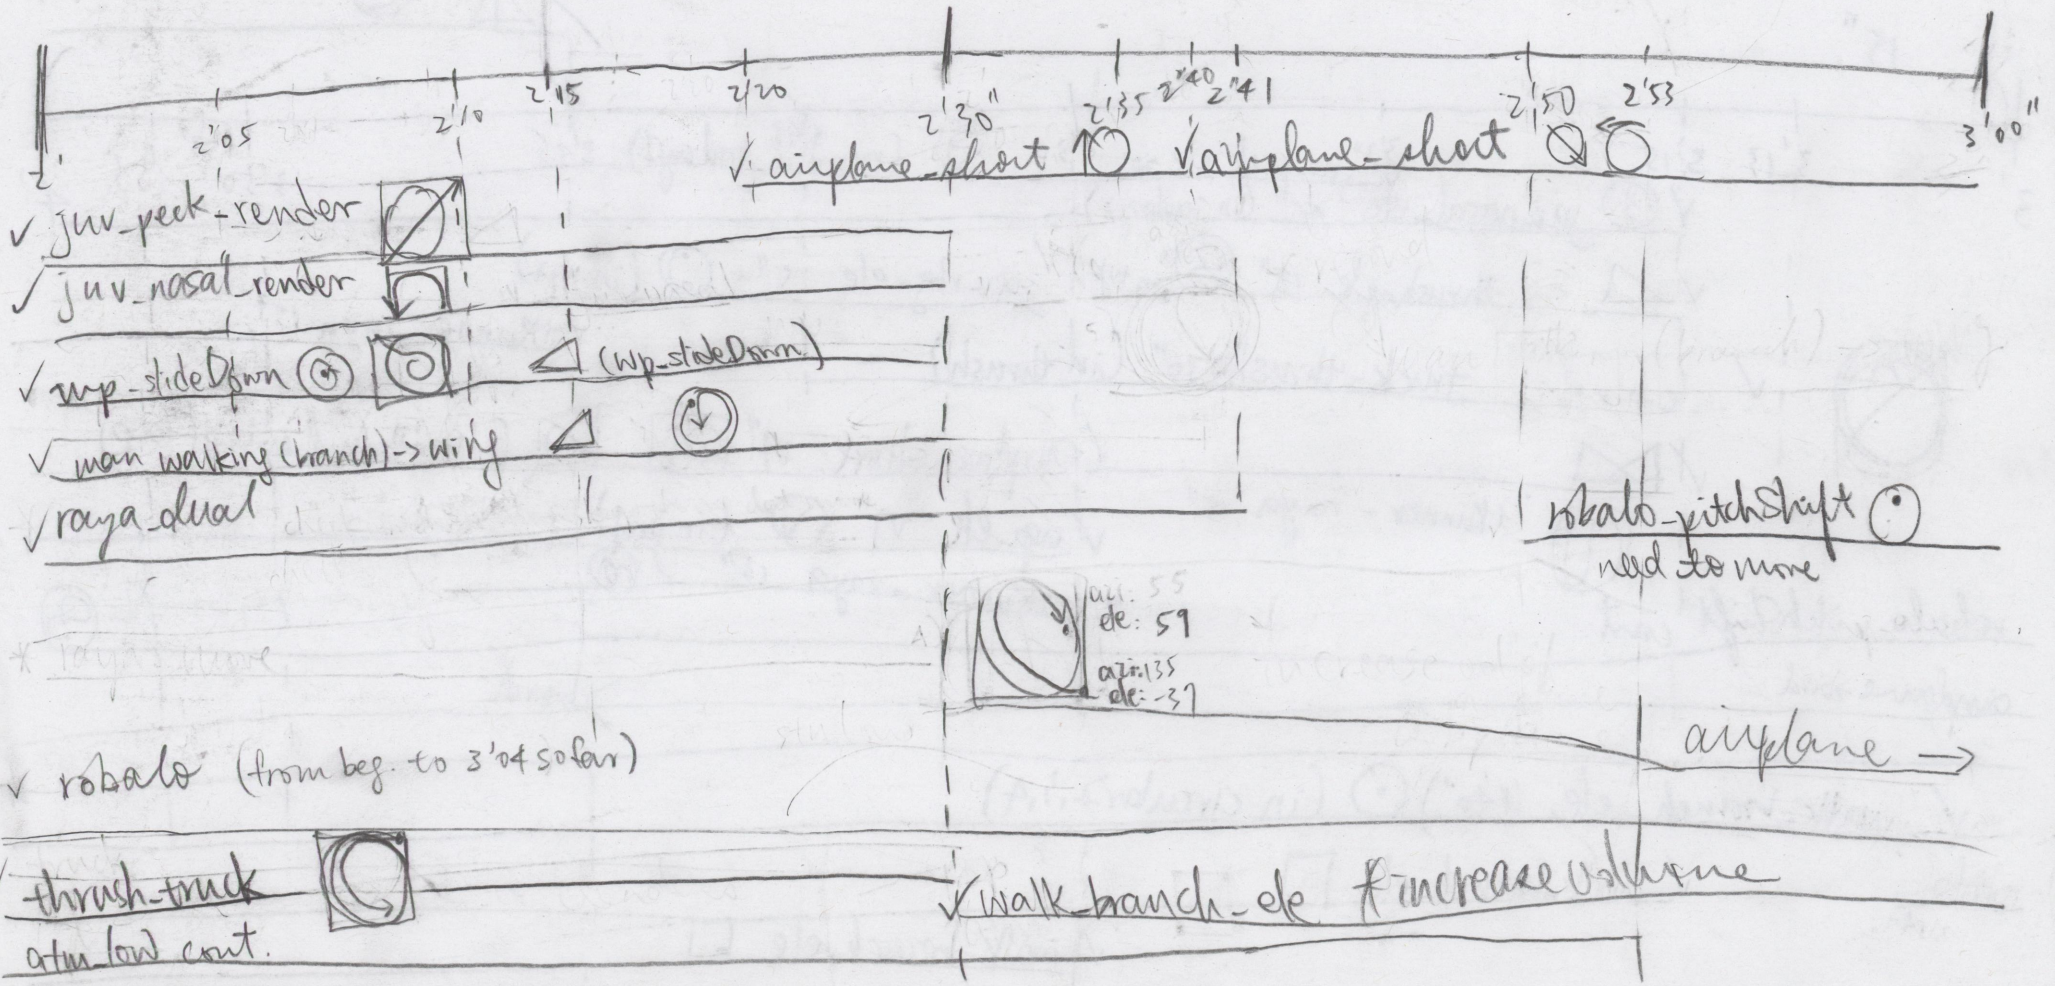 2'
2'05
2'10
2'15
2'20
2'30"
2'35
2'40
2'41
2'50
2'53
3'00"
✓ airplane_short ✓ airplane_short
✓ juv_peck_render
✓ juv_nasal_render
✓ wp_slideDown (wp_slideDown)
✓ man walking (branch) -> wing
✓ raya_dual
robalo_pitchShift
need to move
azi: 55
ele: 59
azi: 135
ele: -37
airplane →
✓ robalo (from beg. to 3'04 so far)
thrush_truck
✓ walk_branch_ele * increase volume
atm_low cont.